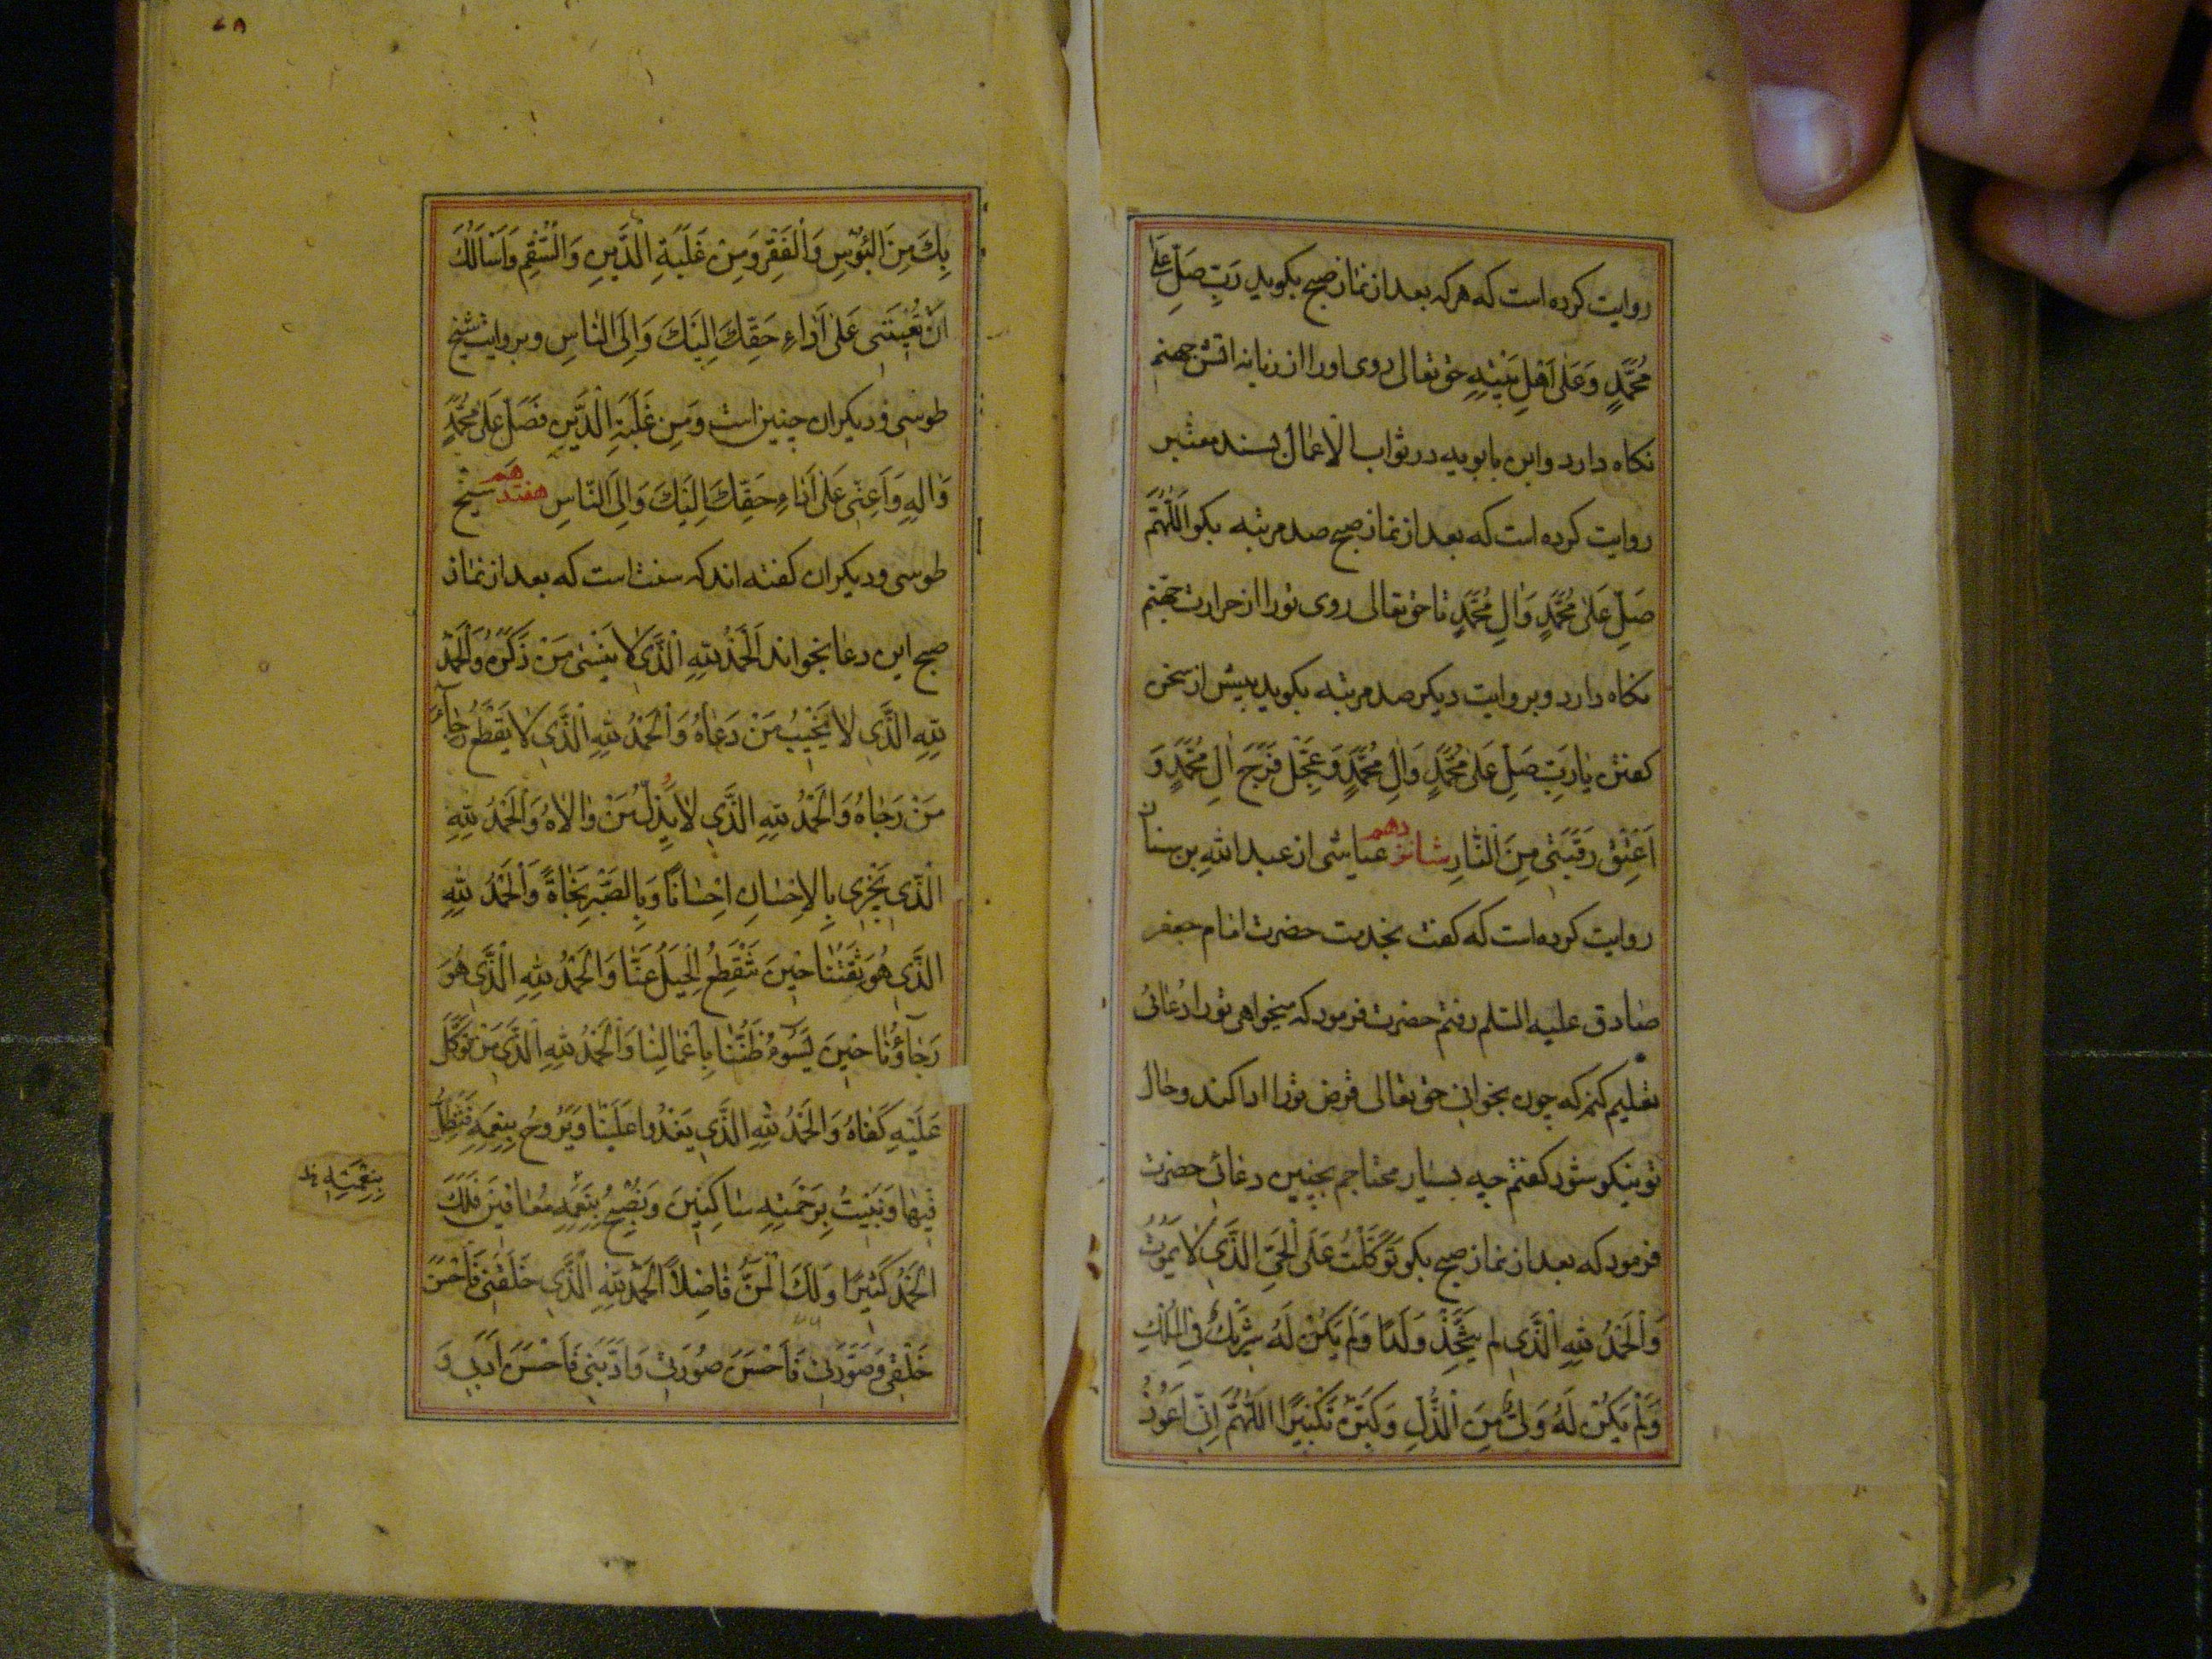 روایت کرده است که هرکه بعد از نماز صبح بکوید رَبِّ صَلِّ عَلیٰ
مُحَمَّدٍ وَعَلیٰ اَهْلِ بَیْتِهِ حق تعالی روی اورا از زبانه اتش جهنم
نکاه دارد و ابن بابویه در ثواب الاعمال بسند معتبر
روایت کرده است که بعد از نماز صبح صد مرتبه بکو اَللّٰهُمَّ
صَلِّ عَلیٰ مُحَمَّدٍ وَالِ مُحَمَّدٍ تا حق تعالی روی تورا از حرارت جهنم
نکاه دارد و بروایت دیکر صد مرتبه بکوید پیش از سخن
کفتن یٰا رَبِّ صَلِّ عَلیٰ مُحَمَّدٍ وَالِ مُحَمَّدٍ وَعَجِّلْ فَرَجَ اٰلِ مُحَمَّدٍ وَ
اَعْتِقْ رَقَبَتی مِنَ النّٰارِ شانزدهم عیاشی از عبدالله بن سنان
روایت کرده است که کفت بخدمت حضرت امام جعفر
صادق علیه السلم رفتم حضرت فرمود که میخواهی تورا دعائی
تعلیم کنم که چون بخوانی حق تعالی قرض تورا ادا کند و حال
تو نیکو شود کفتم چه بسیار محتاجم بچنین دعائی حضرت
فرمود که بعد از نماز صبح بکو تَوَکَّلْتُ عَلَی الْحَیِّ الَّذی لا یَمُوتُ
وَالْحَمْدُ لِلّٰهِ الَّذی لم یَتَّخِذْ وَلَدًا وَلَمْ یَکُنْ لَهُ شَریكٌ فِی الْمُلْكِ
وَلَمْ یَکُنْ لَهُ وَلِیٌّ مِنَ الذُّلِّ وَکَبِّرْهُ تَکْبیرًا اَللّٰهُمَّ اِنّی اَعُوذُ
بِكَ مِنَ الْبُؤْسِ وَالْفَقْرِ وَمِنْ غَلَبَةِ الدَّیْنِ وَالسُّقْمِ وَاَسْاَلُكَ
اَنْ تُعینَنی عَلیٰ اَدٰاءِ حَقِّكَ اِلَیْكَ وَاِلَی النّٰاسِ و بروایت شیخ
طوسی و دیکران چنین است وَمِنْ غَلَبَةِ الدَّیْنِ فَصَلِّ عَلیٰ مُحَمَّدٍ
وَالِهِ وَاَعِنّی عَلیٰ اَدٰاءِ حَقِّكَ اِلَیْكَ وَاِلَی النّٰاسِ هفتدهم شیخ
طوسی و دیکران کفته اند که سنت است که بعد از نماز
صبح این دعا بخواند اَلْحَمْدُ لِلّٰهِ الَّذی لا یَنْسیٰ مَنْ ذَکَرَهُ وَالْحَمْدُ
لِلّٰهِ الَّذی لا یُخَیِّبُ مَنْ دَعٰاهُ وَالْحَمْدُ لِلّٰهِ الَّذی لا یَقْطَعُ رَجٰاءَ
مَنْ رَجٰاهُ وَالْحَمْدُ لِلّٰهِ الَّذی لا یُذِلُّ مَنْ وٰالاهُ وَالْحَمْدُ لِلّٰهِ
الَّذی یَجْزی بِالْاِحْسٰانِ اِحْسٰانًا وَبِالصَّبْرِ نَجٰاةً وَالْحَمْدُ لِلّٰهِ
الَّذی هُوَ ثِقَتُنٰا حینَ تَنْقَطِعُ الْحِیَلُ عَنّٰا وَالْحَمْدُ لِلّٰهِ الَّذی هُوَ
رَجٰاؤُنٰا حینَ یَسُوءُ ظَنُّنٰا بِاَعْمٰالِنٰا وَالْحَمْدُ لِلّٰهِ الَّذی مَنْ تَوَکَّلَ
عَلَیْهِ کَفٰاهُ وَالْحَمْدُ لِلّٰهِ الَّذی یَغْدُوا عَلَیْنٰا وَیَرُوحُ بِنِعَمِهِ فَنَظَلُّ
فیهٰا وَنَبیتُ بِرَحْمَتِهِ سٰاکِنینَ وَنُصْبِحُ بِنِعَمِهِ مُعٰافینَ فَلَكَ
بِنِعْمَتِهِ
الْحَمْدُ کَثیرًا وَلَكَ الْمَنُّ فٰاضِلاً اَلْحَمْدُ لِلّٰهِ الَّذی خَلَقَنی فَاَحْسَنَ
خَلْقی وَصَوَّرَنی فَاَحْسَنَ صُورَتی وَاَدَّبَنی فَاَحْسَنَ اَدَبی وَ